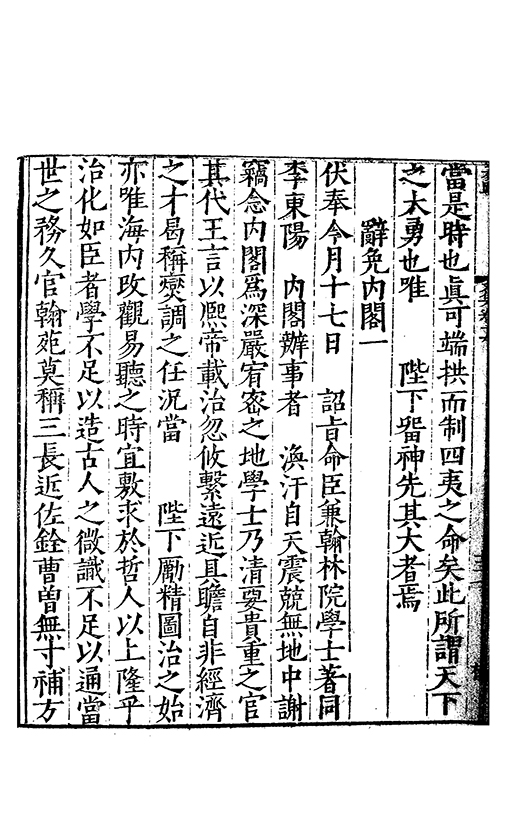 當是時也眞可端拱而制四夷之命矣此所謂天下
之大勇也唯　陛下畱神先其大者焉
辭免内閣一
伏奉今月十七日　詔旨命臣兼翰林院學士著同
李東陽　内閣辦事者　渙汗自天震兢無地中謝
竊念内閣爲深嚴宥密之地學士乃清要貴重之官
其代王言以熈帝載治忽攸繫遠近具瞻自非經濟
之才曷稱爕調之任況當　陛下厲精圖治之始
亦唯海内攺觀易聽之時宜敷求於哲人以上隆乎
治化如臣者學不足以造古人之微識不足以通當
世之務久官翰苑莫稱三長近佐銓曹曾無寸補方